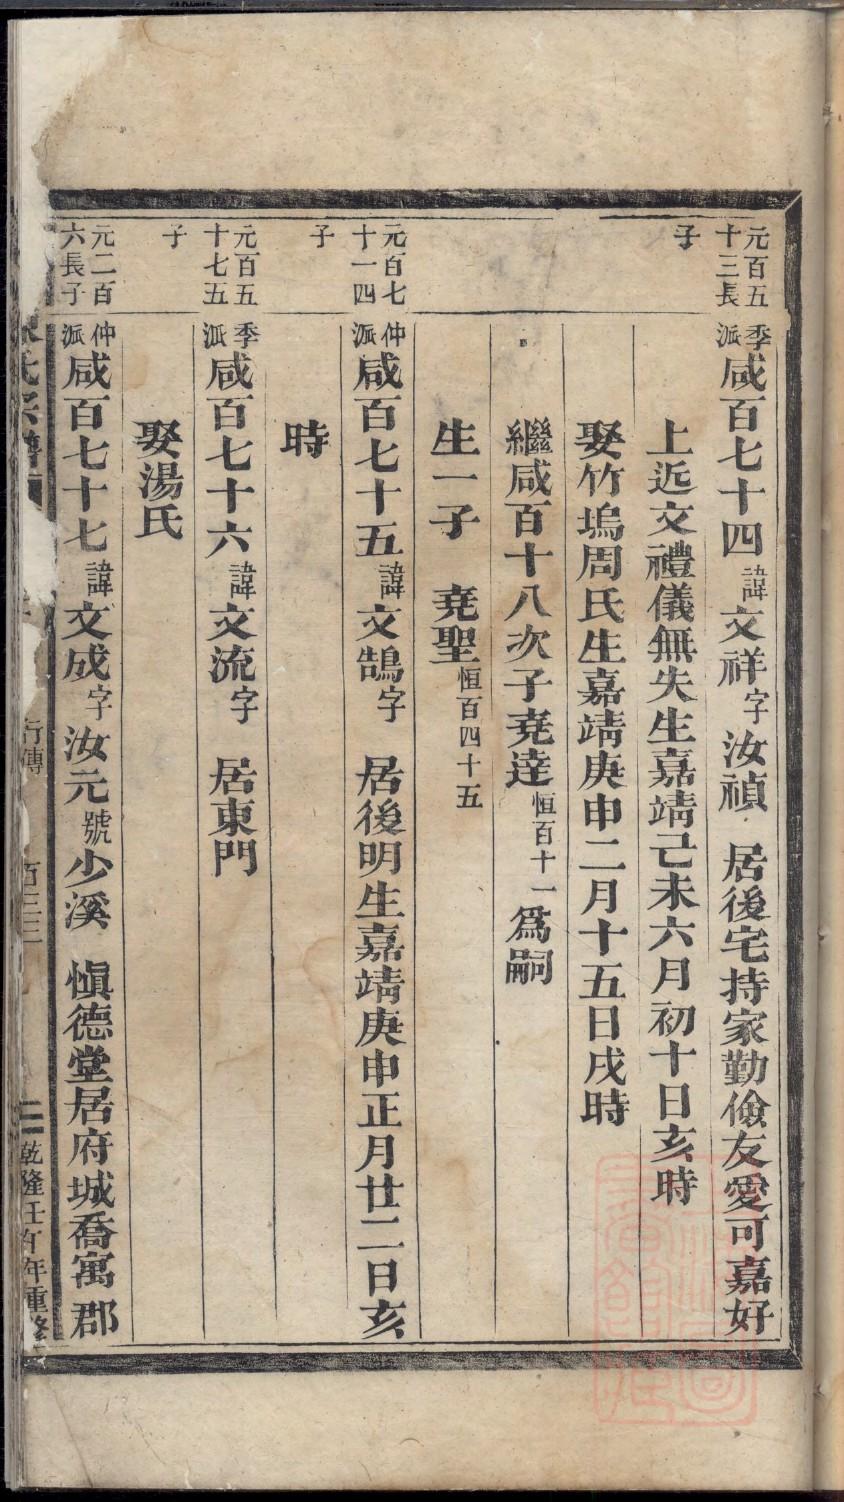 元百五十三長子
季派咸百七十四諱文祥字汝禎 居後宅持家勤儉友愛可嘉好
上近文禮儀無失生嘉靖己未六月初十日亥時
娶竹塢周氏生嘉靖庚申二月十五日戌時
繼咸百十八次子堯達恒百十一為嗣
生一子 堯聖恒百四十五
元百七十一四子
仲派咸百七十五諱文鵠字 居後明生嘉靖庚申正月廿二日亥
時
元百五十七五子
季派咸百七十六諱文流字 居東門
娶湯氏
元二百六長子
仲派咸百七十七諱文成字汝元號少溪 愼德堂居府城喬寓郡
氏宗譜
行傳
百三三
乾隆壬午年重修